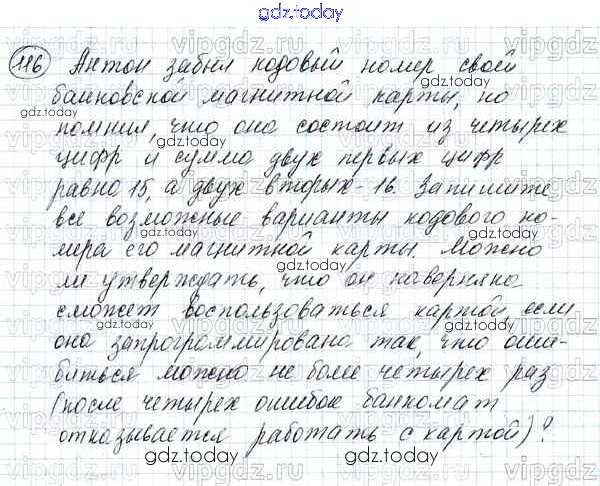 gdz.today
116 Антон забыл кодовый номер своей
банковской магнитной карты, но
помнил, что она состоит из четырех
цифр и сумма двух первых цифр
равна 15, а двух вторых - 16. Запишите
все возможные варианты кодового но-
мера его магнитной карты. Можно
ли утверждать, что он наверняка
сможет воспользоваться картой, если
она запрограммирована так, что оши-
биться можно не более четырех раз
(после четырех ошибок банкомат
отказывается работать с картой)?
gdz.today